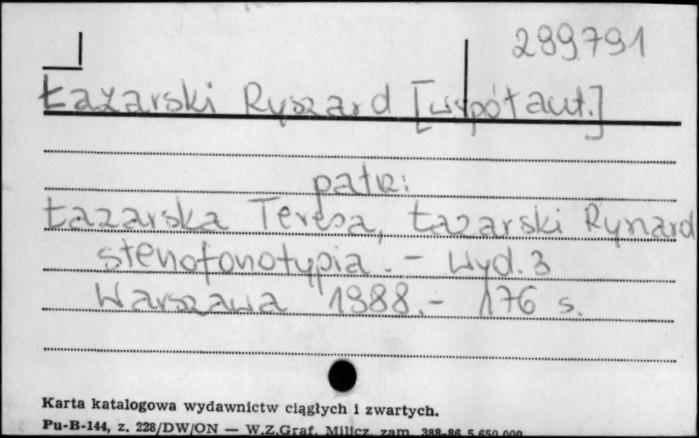 299791
Łazarski Ryszard [współaut.]
patrz:
Łazarska Teresa, Łazarski Ryszard
stenofonotypia. - Wyd. 3
Warszawa 1988. - 176 s.
Karta katalogowa wydawnictw ciągłych i zwartych.
Pu-B-144, z. 228/DW/ON — W.Z.Graf. Milicz, zam. 388-86 5.650.000